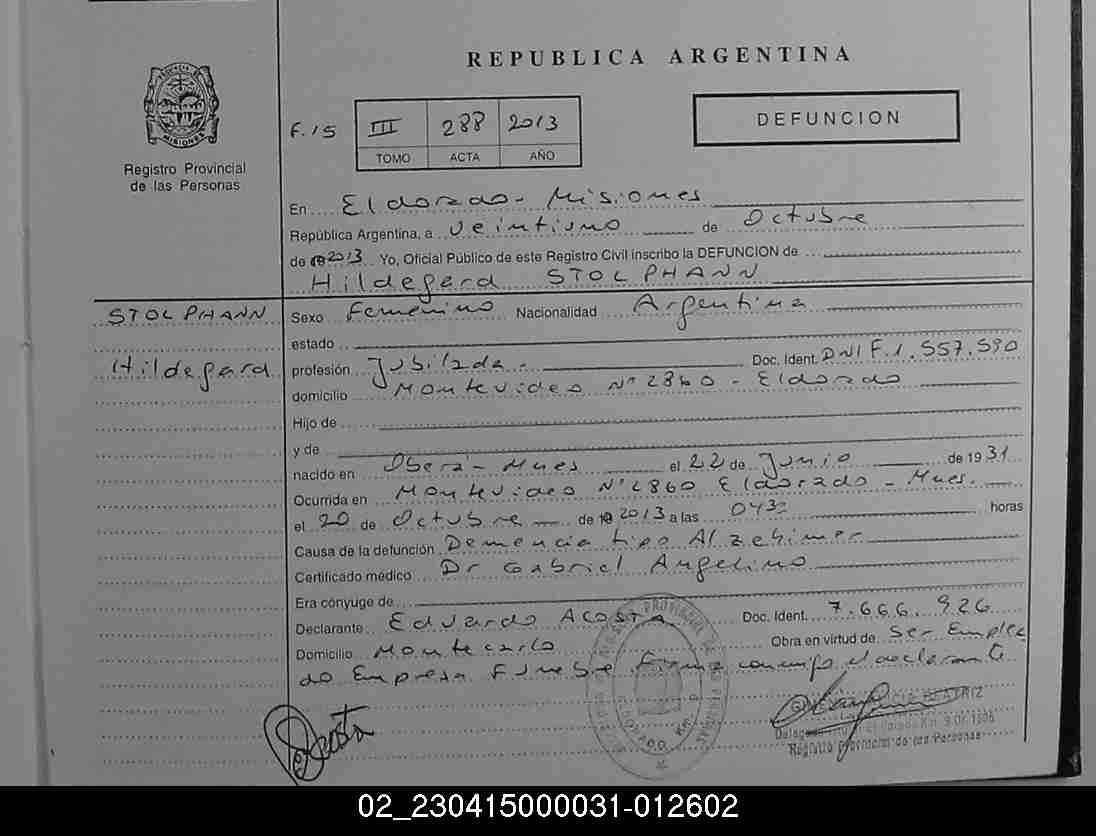 REPUBLICA ARGENTINA
PROVINCIA DE MISIONES
Registro Provincial
de las Personas
F. 15
III 288 2013
TOMO ACTA AÑO
DEFUNCION
En Eldorado - Misiones
República Argentina, a Veintiuno de Octubre
de 2013 Yo, Oficial Público de este Registro Civil inscribo la DEFUNCION de
Hildegard STOLPHANN
STOLPHANN
Hildegard
Sexo Femenino Nacionalidad Argentina
estado
profesión Jubilada - Doc. Ident. DNI F. 1.557.590
domicilio Montevideo Nº 2860 - Eldorado
Hijo de
y de
nacido en Oberá - Mnes el 22 de Junio de 1931
Ocurrida en Montevideo Nº 2860 Eldorado - Mnes.
el 20 de Octubre de 2013 a las 0430 horas
Causa de la defunción Demencia tipo Alzehimer
Certificado médico Dr Gabriel Angelino
Era cónyuge de
Declarante Eduardo ACOSTA Doc. Ident. 7.666.926
Domicilio Montecarlo Obra en virtud de Ser Emplea
do Empresa Funebre Firma conmigo el declarante
Acosta
BEATRIZ
Registro Provincial de las Personas
02_230415000031-012602